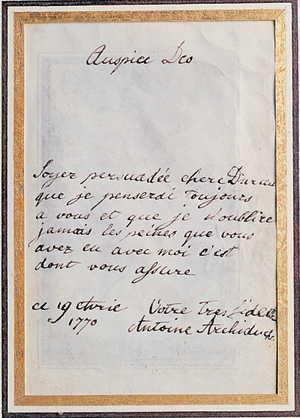 Auspice Deo
Soyer persuadée chere Durieu
que je penserai toujours
a vous et que je n'oublire
jamais les peines que vous
avez eu avec moi c'est
dont vous assure
ce 19 Avrie Votre Tres fidelle
1770 Antoine Archiduch.